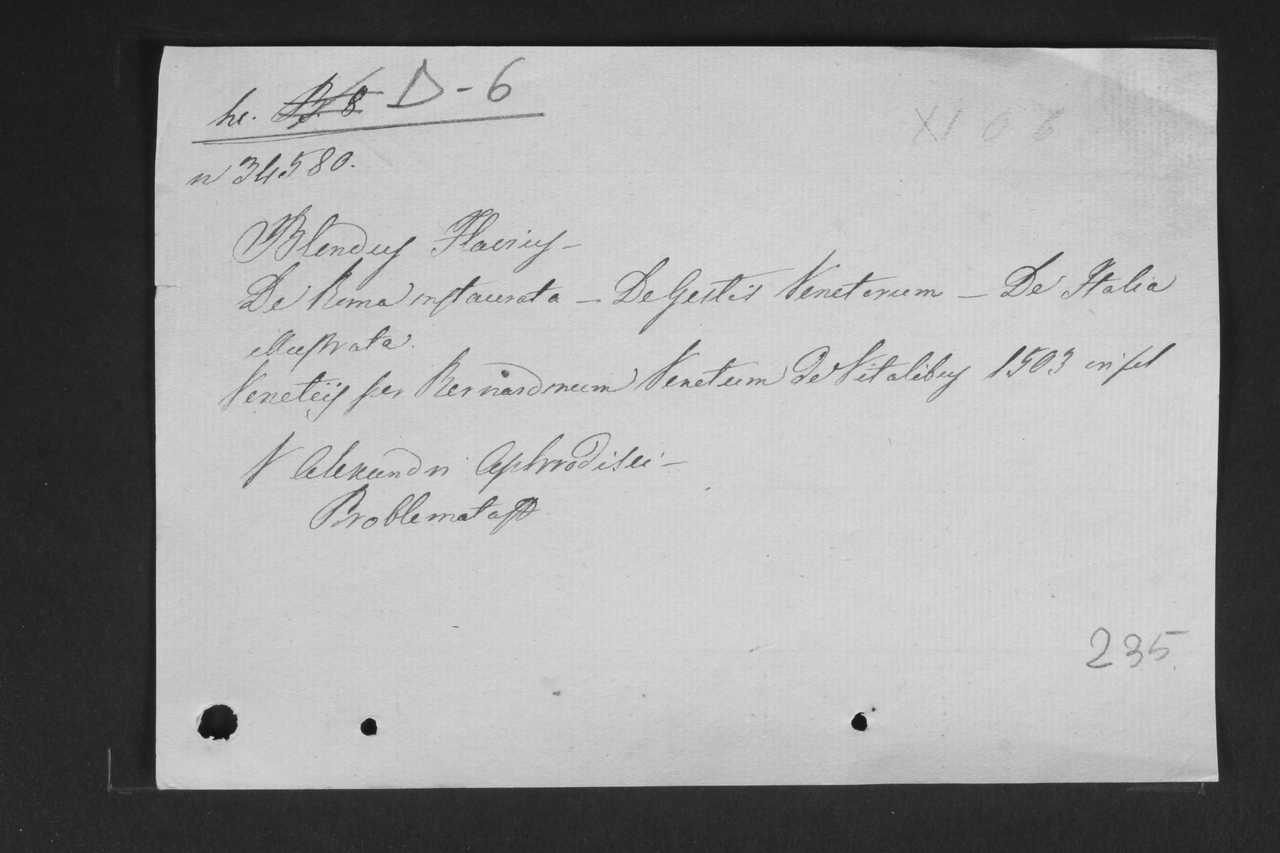 hr. B. 8 D-6
XI O 6
n 34580.
Blondus Flavius –
De Roma instaurata – De Gestis Venetorum – De Italia
illustrata.
Venetiis per Bernardinum Venetum De Vitalibus 1503 in fol
V Alexandri Aphrodisei –
Problemata
235.